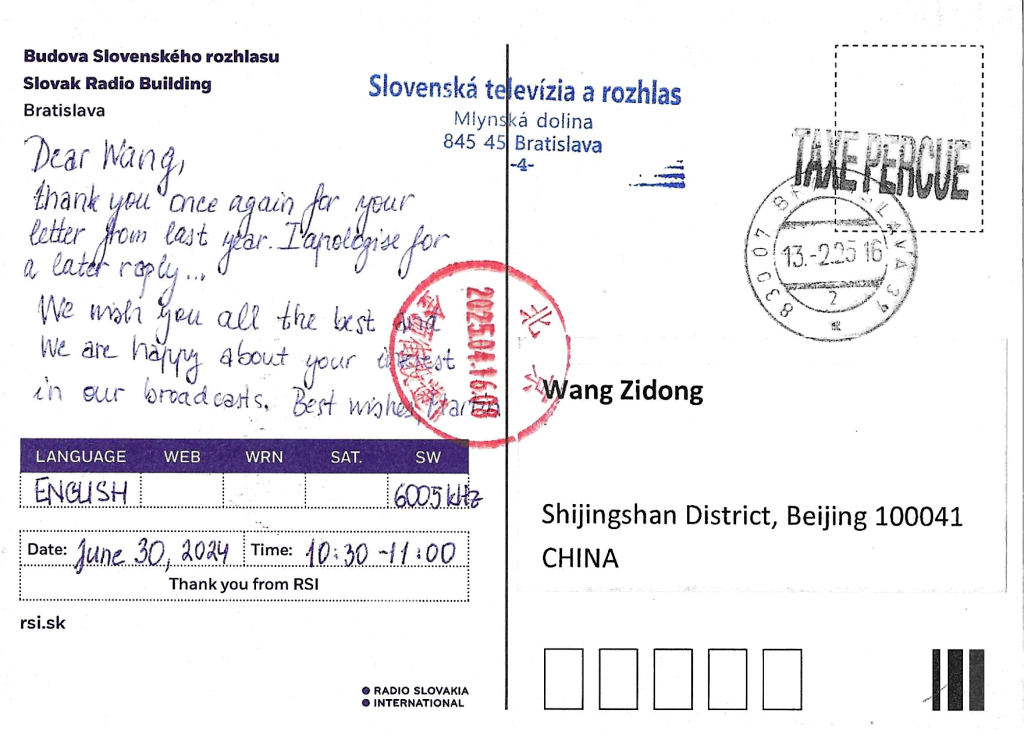 Budova Slovenského rozhlasu
Slovak Radio Building
Bratislava
Dear Wang,
thank you once again for your
letter from last year. I apologise for
a later reply...
We wish you all the best and
We are happy about your interest
in our broadcasts. Best wishes,
LANGUAGE WEB WRN SAT. SW
ENGLISH 6005 kHz
Date: June 30, 2024 Time: 10:30 - 11:00
Thank you from RSI
rsi.sk
RADIO SLOVAKIA
INTERNATIONAL
Slovenská televízia a rozhlas
Mlynská dolina
845 45 Bratislava
-4-
TAXE PERCUE
830 07 BRATISLAVA 39
13.-2.25 16
2
北京
2025.04.16.08
Wang Zidong
Shijingshan District, Beijing 100041
CHINA